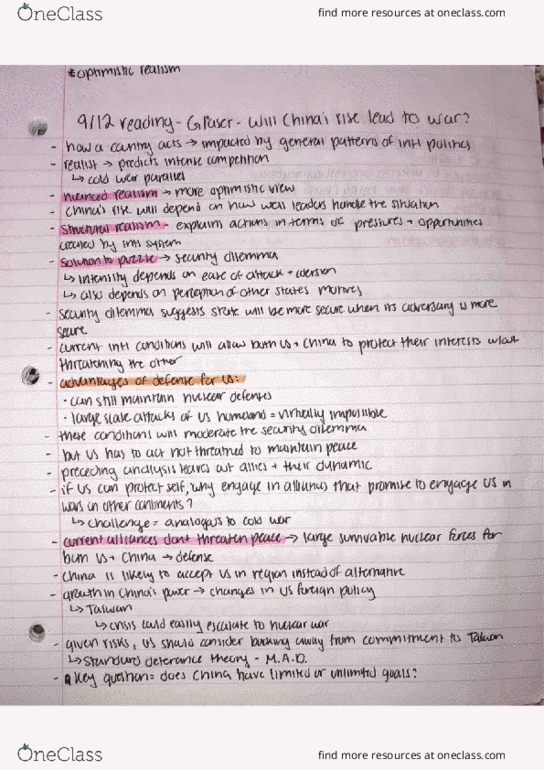 OneClass
find more resources at oneclass.com
*optimistic realism
9/12 reading - Glaser - Will China's rise lead to war?
- how a country acts → impacted by general patterns of intl politics
- realist → predicts intense competition
↳ cold war parallel
- nuanced realism → more optimistic view
- China's rise will depend on how well leaders handle the situation
- structural realism - explains actions in terms of pressures + opportunities
created by intl system
- solution to puzzle → security dilemma
↳ intensity depends on ease of attack + coersion
↳ also depends on perception of other states motives
- security dilemma suggests state will be more secure when its adversary is more
secure
- current intl conditions will allow both us + China to protect their interests w/out
threatening the other
- advantages of defense for US:
· can still maintain nuclear defenses
· large scale attacks of US homeland = virtually impossible
- these conditions will moderate the security dilemma
- but US has to act not threatned to maintain peace
- preceding analysis leaves out allies + their dynamic
- if US can protect self, why engage in alliances that promise to engage US in
wars on other continents?
↳ challenge = analogous to cold war
- current alliances dont threaten peace → large survivable nuclear forces for
both US + China → defense
- China is likely to accept US in region instead of alternative
- growth in China's power → changes in US foreign policy
↳ Taiwan
↳ crisis could easily escalate to nuclear war
- given risks, US should consider backing away from commitment to Taiwan
↳ standard deterance theory - M.A.D.
- key question = does China have limited or unlimited goals?
OneClass
find more resources at oneclass.com